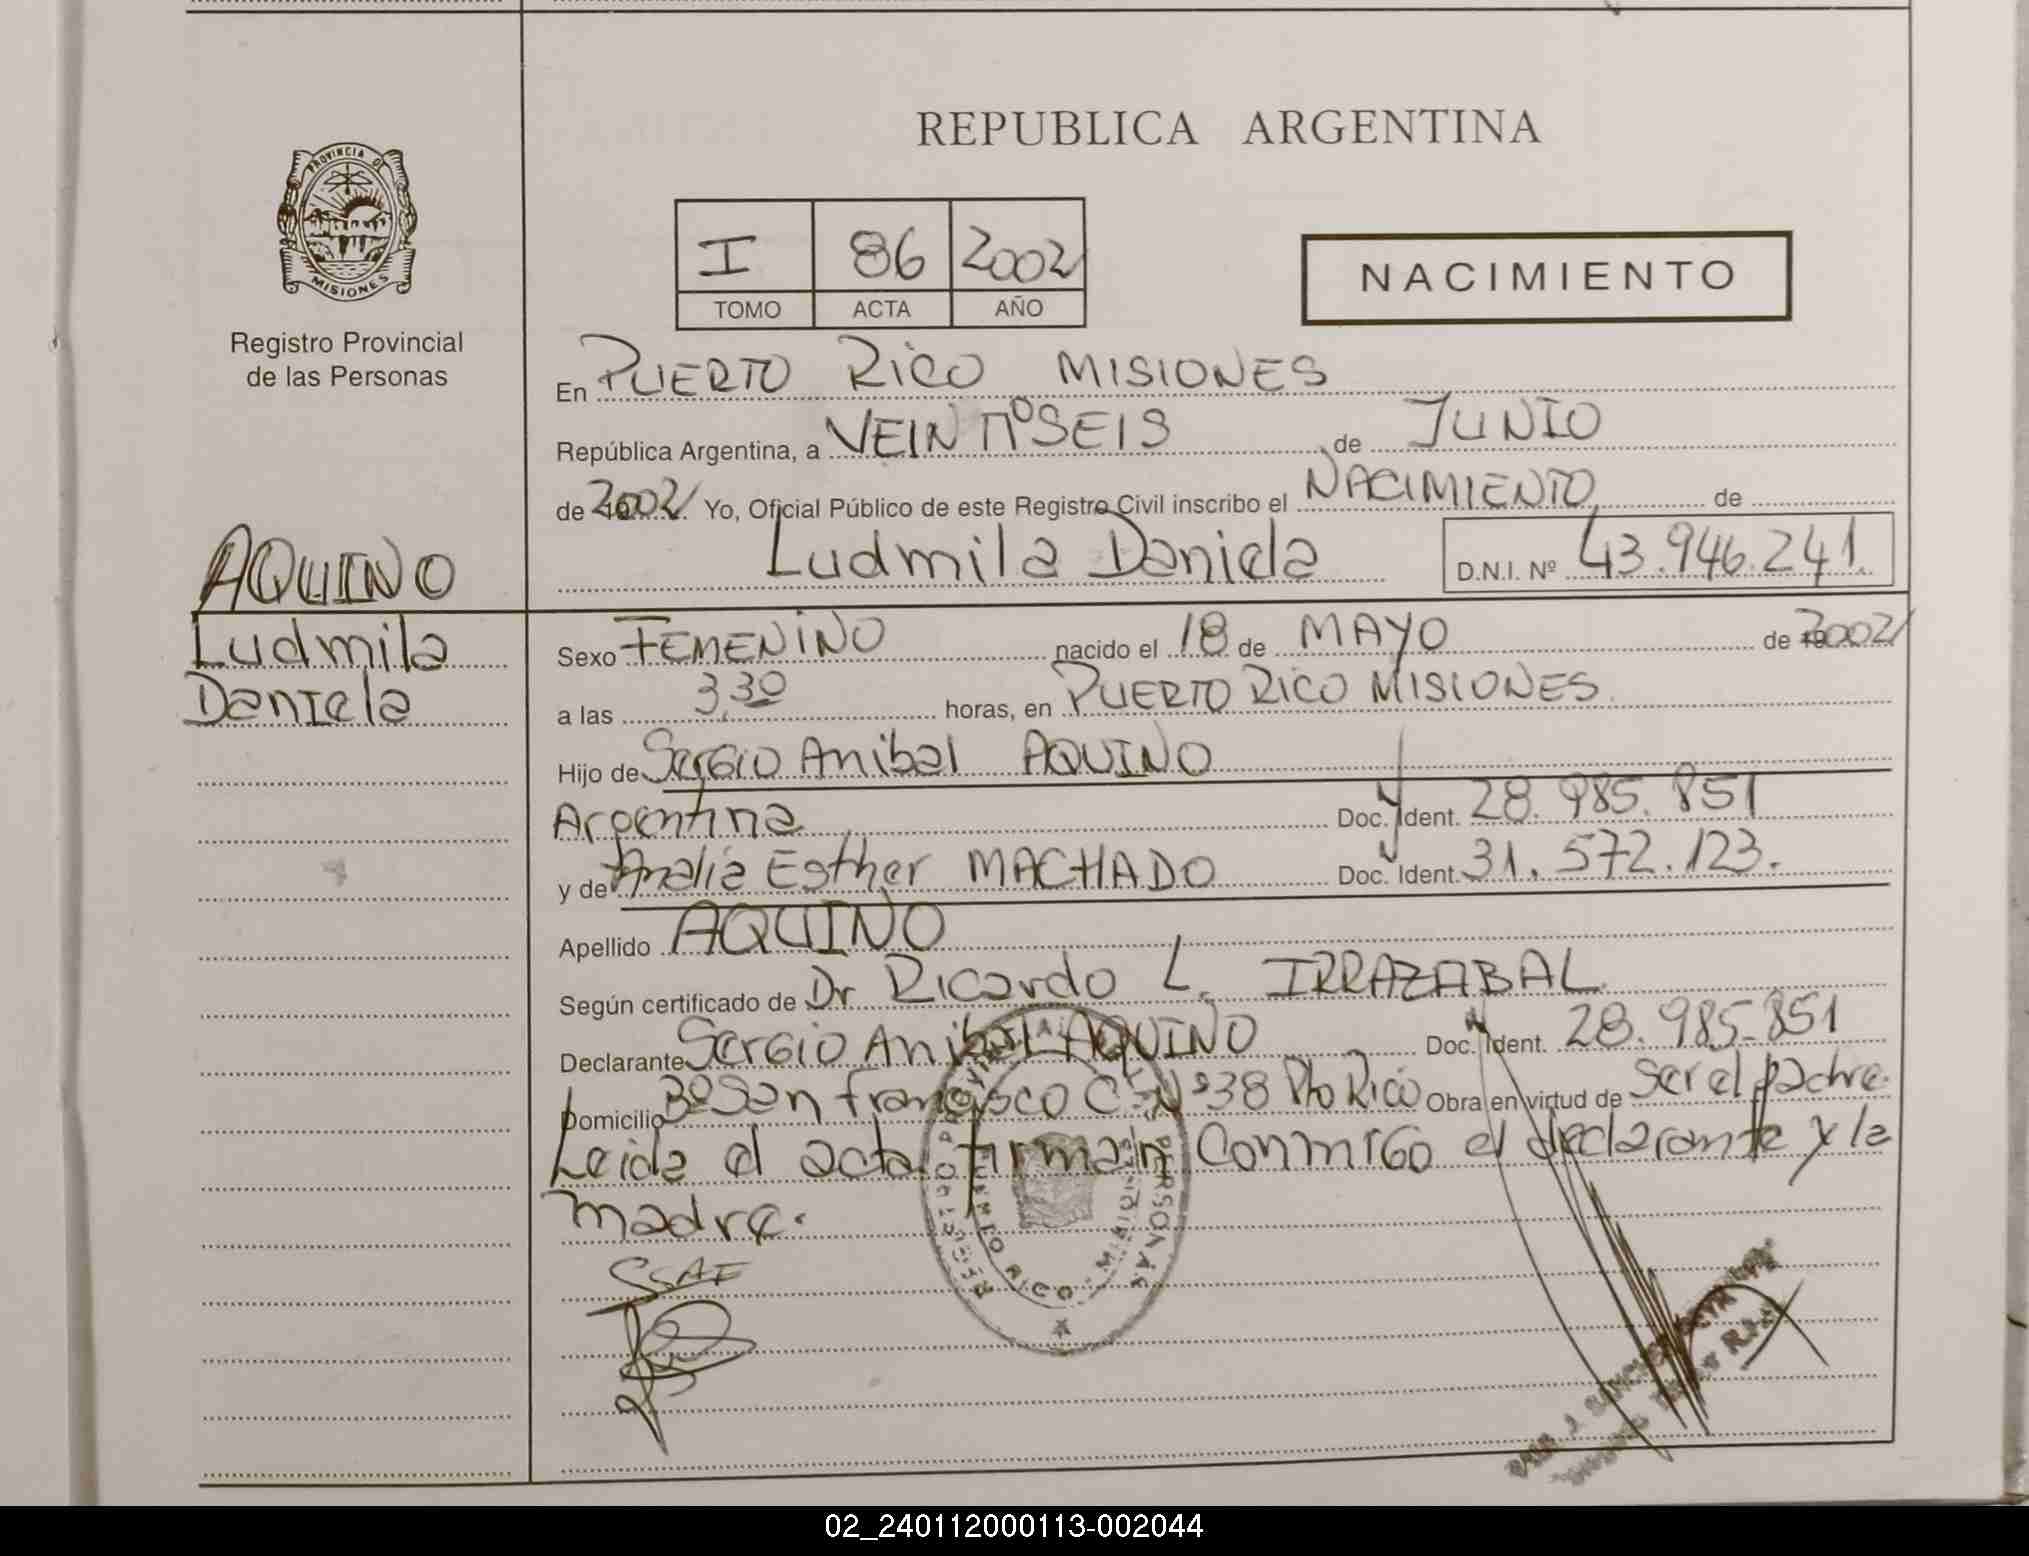 REPUBLICA ARGENTINA
PROVINCIA DE
MISIONES
Registro Provincial
de las Personas
I 86 2002
TOMO ACTA AÑO
NACIMIENTO
En PUERTO RICO MISIONES
República Argentina, a VEINTIOSEIS de JUNIO
de 2002 Yo, Oficial Público de este Registro Civil inscribo el NACIMIENTO de
Ludmila Daniela D.N.I. Nº 43.946.241.
AQUINO
Ludmila
Daniela
Sexo FEMENINO nacido el 18 de MAYO de 2002
a las 3,30 horas, en PUERTO RICO MISIONES.
Hijo de Sergio Anibal AQUINO
Argentina Doc. Ident. 28.985.851
y de Analia Esther MACHADO Doc. Ident. 31.572.123.
Apellido AQUINO
Según certificado de Dr Ricardo L. IRRAZABAL.
Declarante Sergio Anibal AQUINO Doc. Ident. 28.985.851
Domicilio Bº San Francisco C. Nº 38 Pto Rico Obra en virtud de ser el padre.
Leida el acta firman conmigo el declarante y la
madre.
02_240112000113-002044